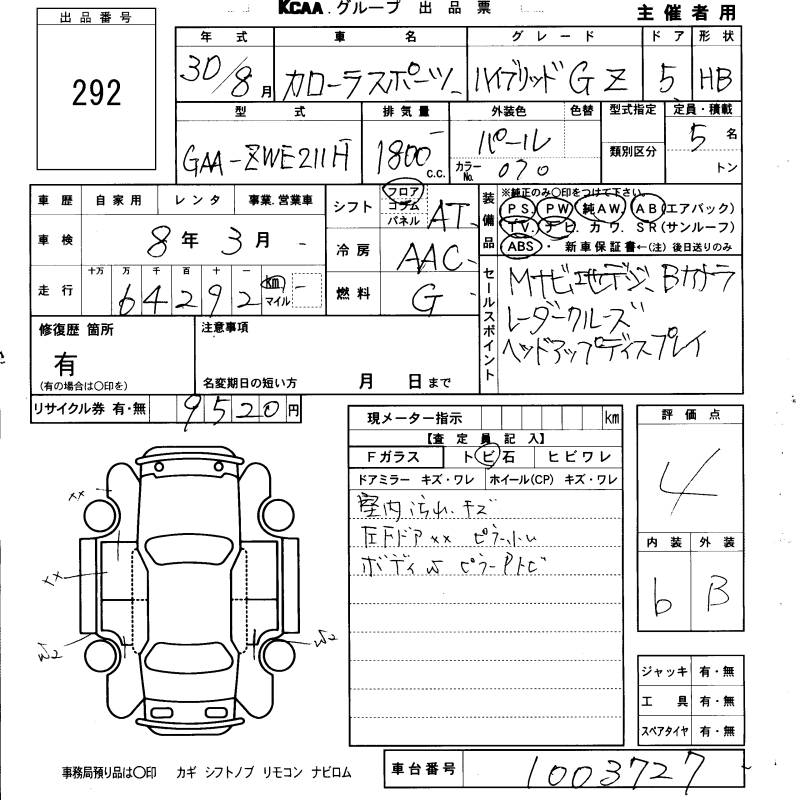 KCAA.グループ 出品票
主催者用
出品番号
292
年式 車名 グレード ドア 形状
30/8月 カローラスポーツ ハイブリッドGZ 5 HB
型式 排気量 外装色 色替 型式指定 定員・積載
GAA-ZWE211H 1800c.c. パール 5名
カラーNo. 070 類別区分 トン
車歴 自家用 レンタ 事業.営業車
車検 8年3月
走行 十万 万 千 百 十 一
64292 km マイル
シフト フロア コラム パネル AT
冷房 AAC
燃料 G
装備品 ※純正のみ○印をつけて下さい。
PS. PW. 純AW. AB(エアバック)
TV. ナビ. カワ. SR(サンルーフ)
ABS・ 新車保証書←(注) 後日送りのみ
セールスポイント
Mナビ地デジ、Bカメラ
レーダークルーズ
ヘッドアップディスプレイ
修復歴 箇所
有
(有の場合は○印を)
注意事項
名変期日の短い方 月 日まで
リサイクル券 有・無 9520円
現メーター指示 km
【査定員記入】
Fガラス トビ石 ヒビワレ
ドアミラー キズ・ワレ ホイール(CP) キズ・ワレ
室内汚れ.キズ
左Fドアxx ピラー
ボディ ピラーPトビ
評価点
4
内装 外装
b B
xx
xx
W2
W2
ジャッキ 有・無
工具 有・無
スペアタイヤ 有・無
事務局預り品は○印 カギ シフトノブ リモコン ナビロム
車台番号 1003727